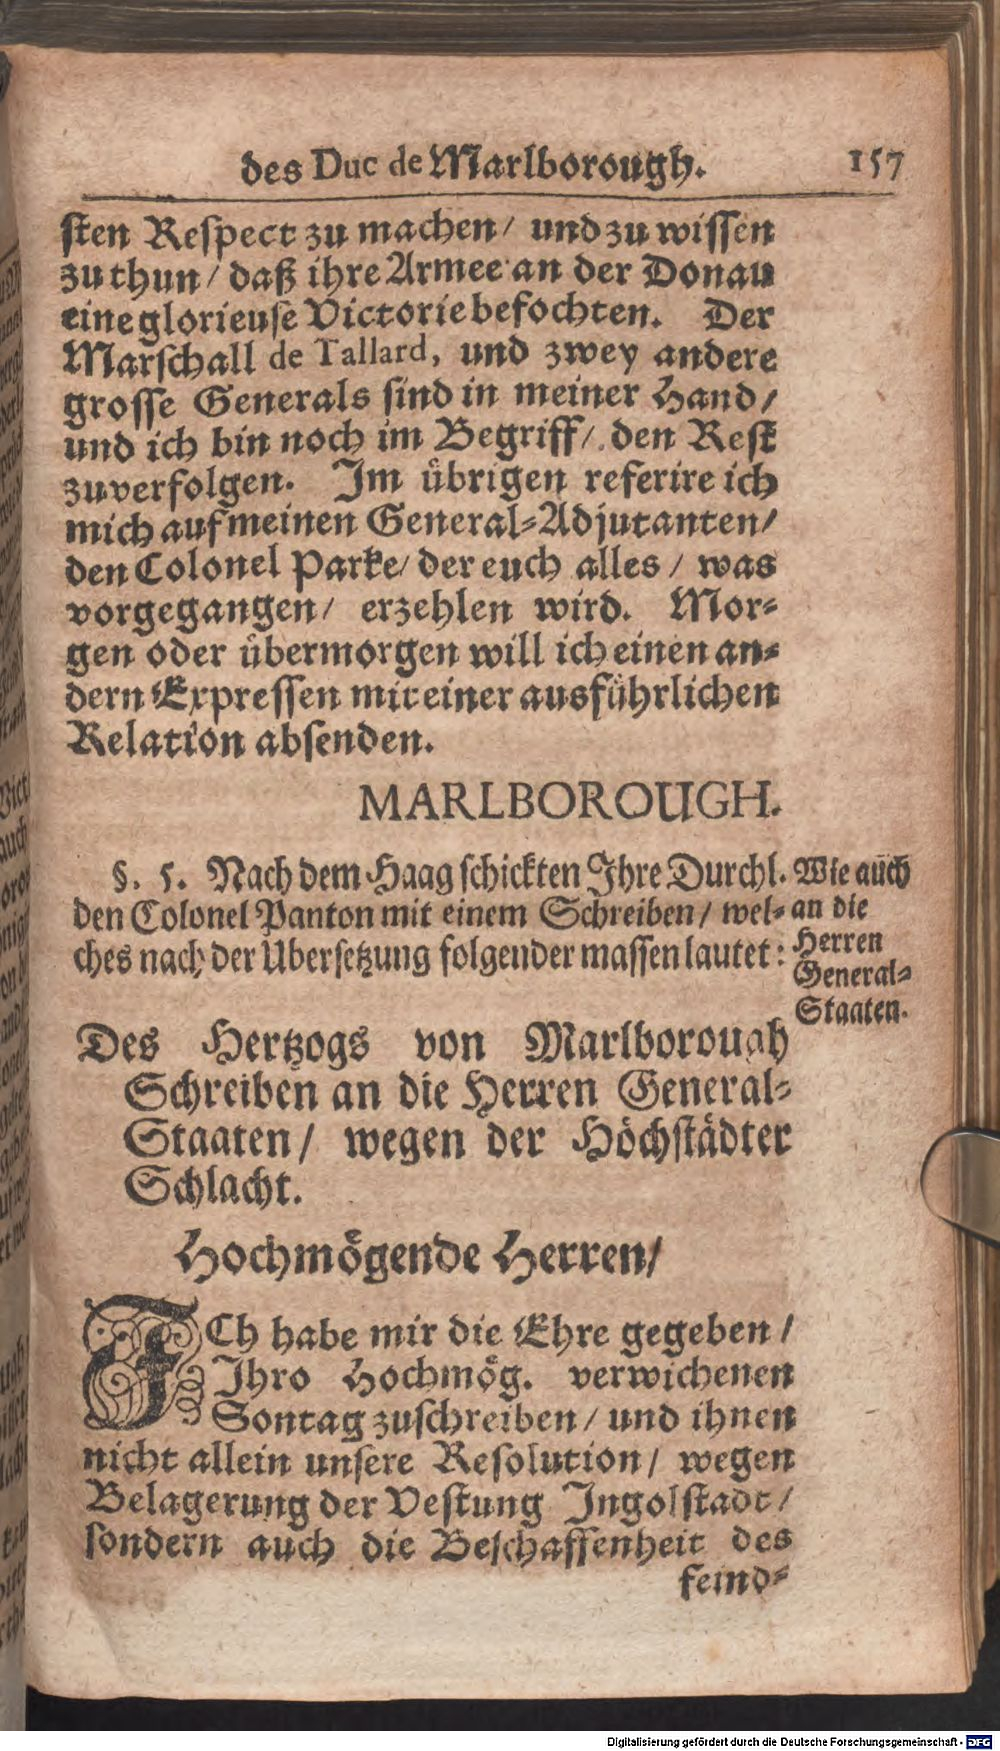 des Duc de Marlborough. 157
sten Respect zu machen/ und zu wissen
zu thun/ daß ihre Armee an der Donau
eine glorieuse Victorie befochten. Der
Marschall de Tallard, und zwey andere
grosse Generals sind in meiner Hand/
und ich bin noch im Begriff/ den Rest
zuverfolgen. Im übrigen referire ich
mich auf meinen General-Adjutanten/
den Colonel Parke/ der euch alles/ was
vorgegangen/ erzehlen wird. Mor-
gen oder übermorgen will ich einen an-
dern Expressen mit einer ausführlichen
Relation absenden.
MARLBOROUGH.
§. 5. Nach dem Haag schickten Ihre Durchl.
den Colonel Panton mit einem Schreiben/ wel-
ches nach der Ubersetzung folgender massen lautet:
Wie auch
an die
Herren
General-
Staaten.
Des Hertzogs von Marlborough
Schreiben an die Herren General-
Staaten/ wegen der Höchstädter
Schlacht.
Hochmögende Herren/
ICh habe mir die Ehre gegeben/
Ihro Hochmög. verwichenen
Sontag zuschreiben/ und ihnen
nicht allein unsere Resolution/ wegen
Belagerung der Vestung Ingolstadt/
sondern auch die Beschaffenheit des
feind-
Digitalisierung gefördert durch die Deutsche Forschungsgemeinschaft - DFG